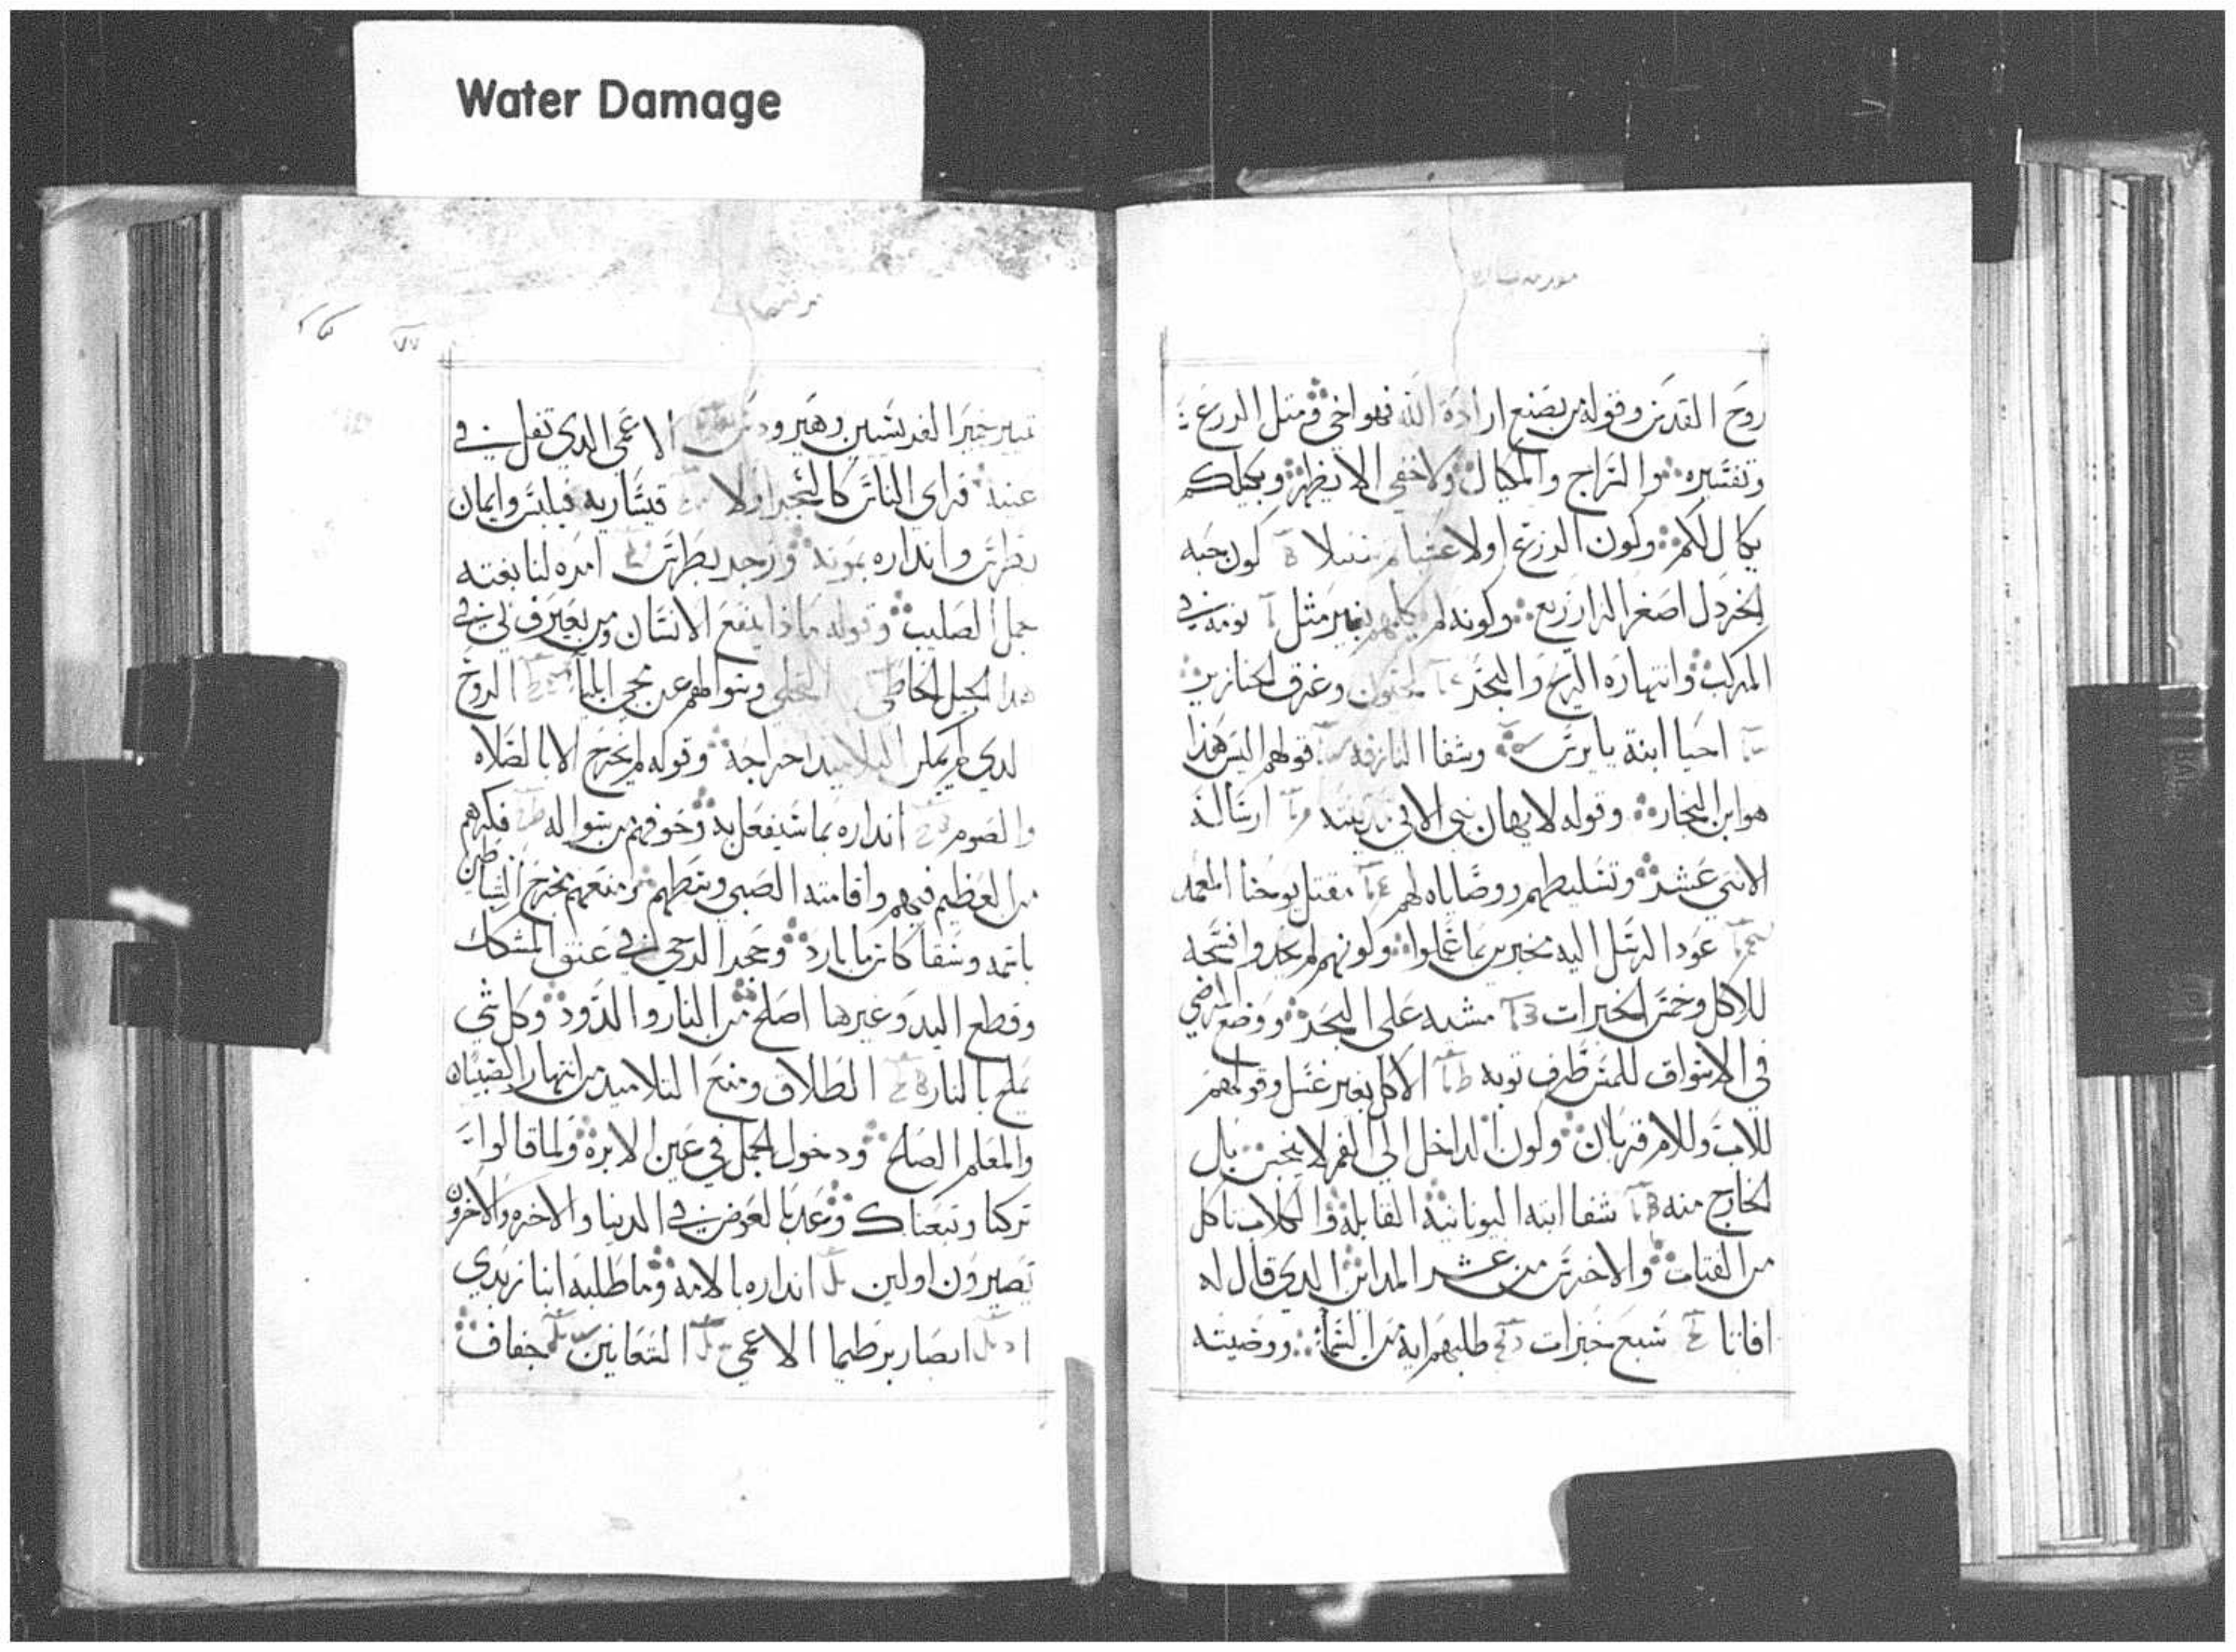 Water Damage
روح القدس وقوله من يصنع ارادة الله فهو اخي ومثل الزرع
وتفسيره والسراج والمكيال ولا خفي الا يظهر وبكيلكم
يكال لكم وكون الزرع اولا عشبا ثم سنبلا كون حبه
الخردل اصغر الزراريع وكونه لم يكلمهم بغير مثل نومه في
المركب وانتهاره الريح والبحر المجنون وغرق الخنازير
احيا ابنة يايرس وشفا النازفه قولهم اليس هذا
هو ابن النجار وقوله لا يهان نبي الا في مدينته ارساله
الاثني عشر وتسليطهم ووصاياه لهم مقتل يوحنا المعمد
عود الرسل اليه مخبرين بما عملوا وكونهم لم يجدوا فسحه
للاكل وخمس الخبزات مشيه على البحر ووضع المرضي
في الاسواق للمس طرف ثوبه الاكل بغير غسل وقولهم
للاب وللام قربان وكون الداخل الى الفم لا ينجس بل
الخارج منه شفا ابنه اليونانيه القابله والكلاب تاكل
من الفتات والاخرس من عشر المداين الذي قال له
افاتا سبع خبزات طلبهم اية من السما ووصيته
خمير الفريسيين وهيرودس الاعمى الذي تفل في
عينيه فراى الناس كالشجر اولا قيساريه فيلبس وايمان
بطرس وانداره بموته وزجر بطرس امره لنا بغتة
حمل الصليب وقوله ماذا ينفع الانسان ومن يعترف بي في
هذا الجيل الخاطي التجلي وسوالهم عن مجي ايليا الروح
الذي لم يمكن التلاميذ اخراجه وقوله لم يخرج الا بالصلاه
والصوم انداره بما سيفعل به وخوفهم من سواله فكرهم
من العظيم فيهم واقامته الصبي وسطهم ومنعهم مخرج الشياطين
باسمه وسقا كاس ما بارد وحجر الرحى في عنق المشكك
وقطع اليد وغيرها اصلح من النار والدود وكل شي
يملح بالنار الطلاق ومنع التلاميذ من انتهار الصبيان
والمعلم الصالح ودخول الجمل في عين الابره ولما قالوا
تركنا وتبعناك وعد بالعوض في الدنيا والاخره والاخرون
يصيرون اولين انداره بالامه وما طلبه ابنا زبدي
ابصار برطيما الاعمى الشعانين جفاف